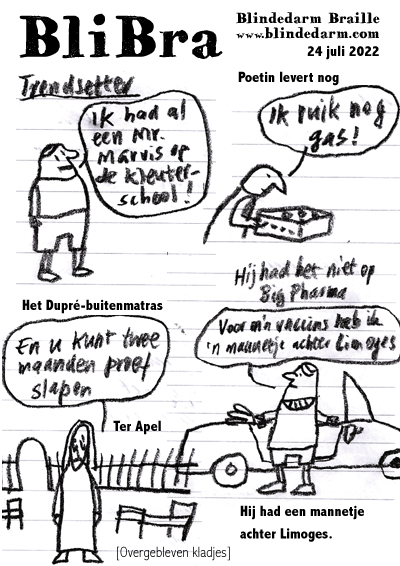 BliBra
Blindedarm Braille
www.blindedarm.com
24 juli 2022
Trendsetter
Ik had al
een Mr.
Marvis op
de kleuter-
school!
Poetin levert nog
Ik ruik nog
gas!
Het Dupré-buitenmatras
En u kunt twee
maanden proef
slapen
Ter Apel
Hij had het niet op
Big Pharma
Voor m'n vaccins heb ik
'n mannetje achter Limoges
Hij had een mannetje
achter Limoges.
[Overgebleven kladjes]